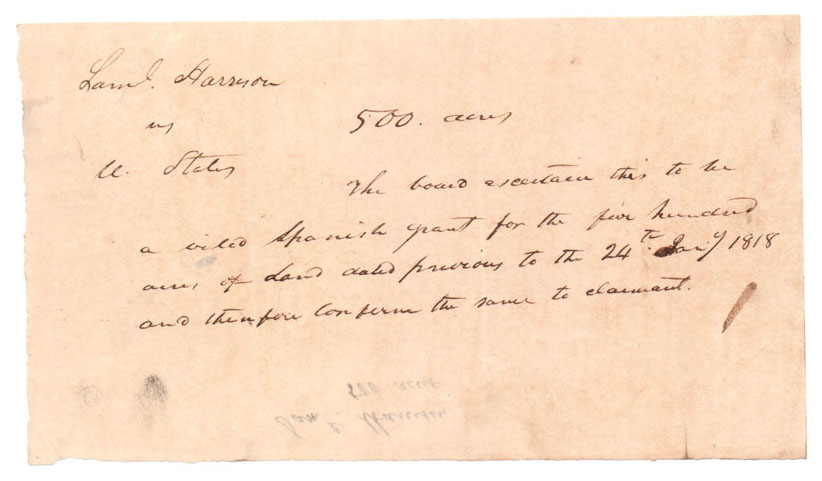 Saml. Harrison
vs
500. acres
U. States
The board ascertain this to be
a valid Spanish grant for the five hundred
acres of Land dated previous to the 24th Jany 1818
and therefore Confirm the same to claimant.
500 acres
Saml. Harrison